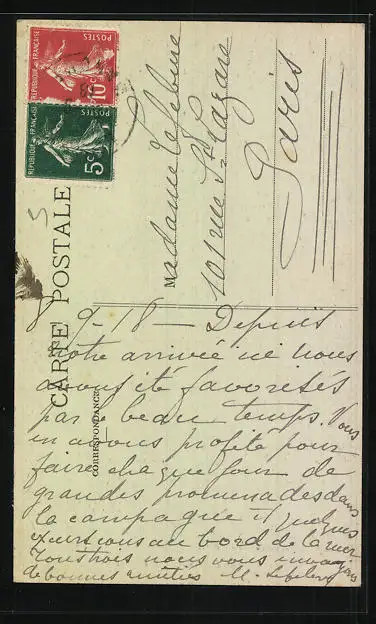 RÉPUBLIQUE FRANÇAISE
POSTES
10c
RÉPUBLIQUE FRANÇAISE
POSTES
5c
CARTE POSTALE
CORRESPONDANCE
Madame Lefebvre
101 rue St Lazare
Paris
9-18 — Depuis
notre arrivée ici nous
avons été favorisés
par le beau temps. Nous
en avons profité pour
faire chaque jour de
grandes promenades dans
la campagne et quelques
excursions au bord de la mer
Tous trois nous vous envoyons
de bonnes amitiés M. Lefebvre